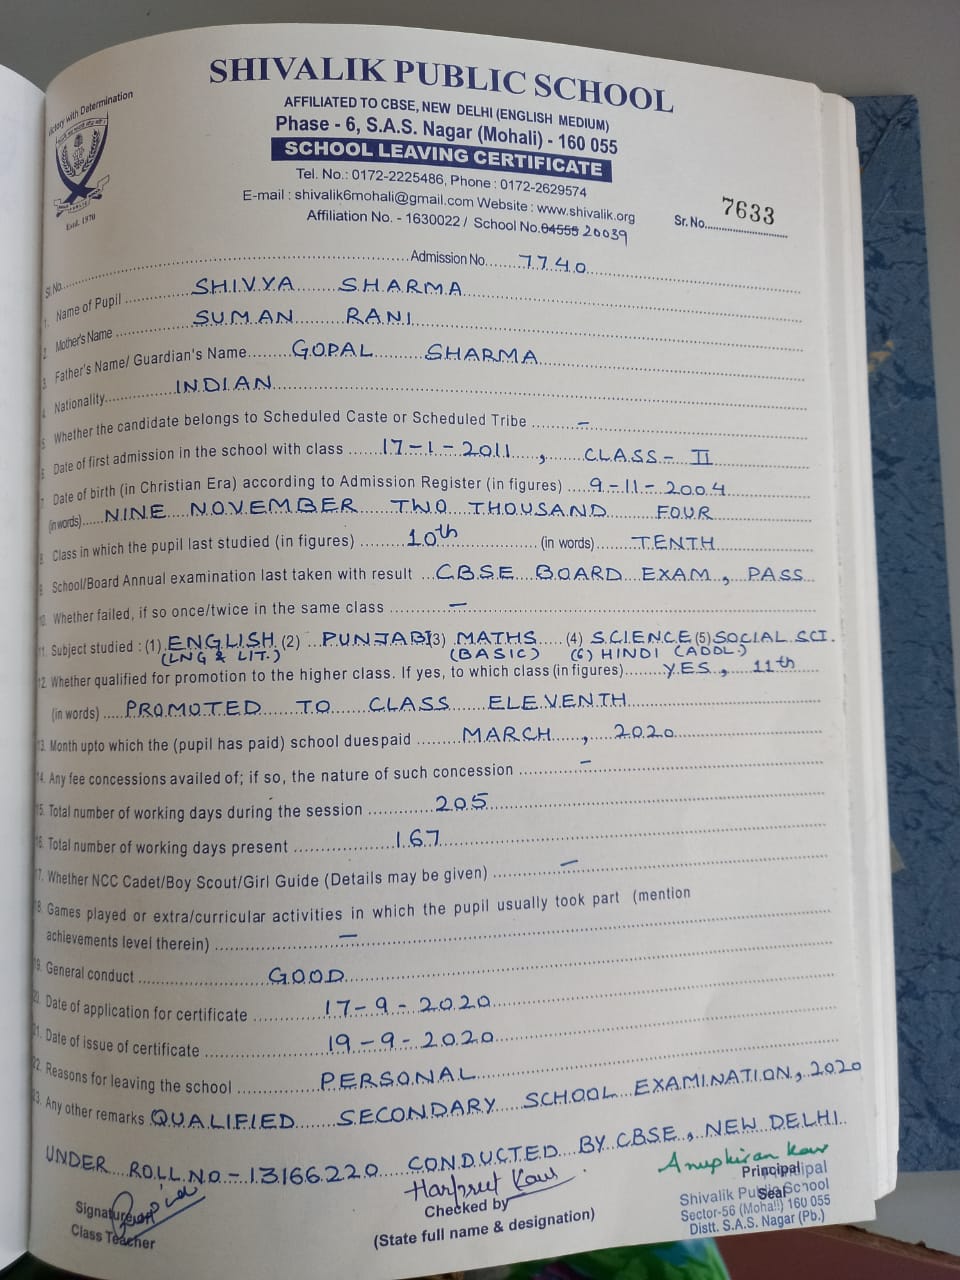 SHIVALIK PUBLIC SCHOOL
Victory with Determination
Estd. 1970
AFFILIATED TO CBSE, NEW DELHI (ENGLISH MEDIUM)
Phase - 6, S.A.S. Nagar (Mohali) - 160 055
SCHOOL LEAVING CERTIFICATE
Tel. No.: 0172-2225486, Phone : 0172-2629574
E-mail : shivalik6mohali@gmail.com Website : www.shivalik.org
Affiliation No. - 1630022 / School No.04555 20039 Sr. No. 7633
Sl. No. Admission No. 7740
1. Name of Pupil SHIVYA SHARMA
2. Mother's Name SUMAN RANI
3. Father's Name/ Guardian's Name GOPAL SHARMA
4. Nationality INDIAN
5. Whether the candidate belongs to Scheduled Caste or Scheduled Tribe –
6. Date of first admission in the school with class 17-1-2011, CLASS- II
7. Date of birth (in Christian Era) according to Admission Register (in figures) 9-11-2004
(in words) NINE NOVEMBER TWO THOUSAND FOUR
8. Class in which the pupil last studied (in figures) 10th (in words) TENTH
9. School/Board Annual examination last taken with result CBSE BOARD EXAM, PASS
10. Whether failed, if so once/twice in the same class –
11. Subject studied : (1) ENGLISH (2) PUNJABI (3) MATHS (4) SCIENCE (5) SOCIAL SCI.
(LNG & LIT.) (BASIC) (6) HINDI (ADDL.)
12. Whether qualified for promotion to the higher class. If yes, to which class (in figures) YES, 11th
(in words) PROMOTED TO CLASS ELEVENTH
13. Month upto which the (pupil has paid) school duespaid MARCH, 2020
14. Any fee concessions availed of; if so, the nature of such concession –
15. Total number of working days during the session 205
16. Total number of working days present 167
17. Whether NCC Cadet/Boy Scout/Girl Guide (Details may be given) –
18. Games played or extra/curricular activities in which the pupil usually took part (mention
achievements level therein) –
19. General conduct GOOD
20. Date of application for certificate 17-9-2020
21. Date of issue of certificate 19-9-2020
22. Reasons for leaving the school PERSONAL
23. Any other remarks QUALIFIED SECONDARY SCHOOL EXAMINATION, 2020
UNDER ROLL NO-13166220 CONDUCTED BY CBSE, NEW DELHI
Harpreet Kaur Anupkiran Kaur
Signature of
Class Teacher
Checked by
(State full name & designation)
Principal
Seal
Principal
Shivalik Public School
Sector-56 (Mohali) 160 055
Distt. S.A.S. Nagar (Pb.)